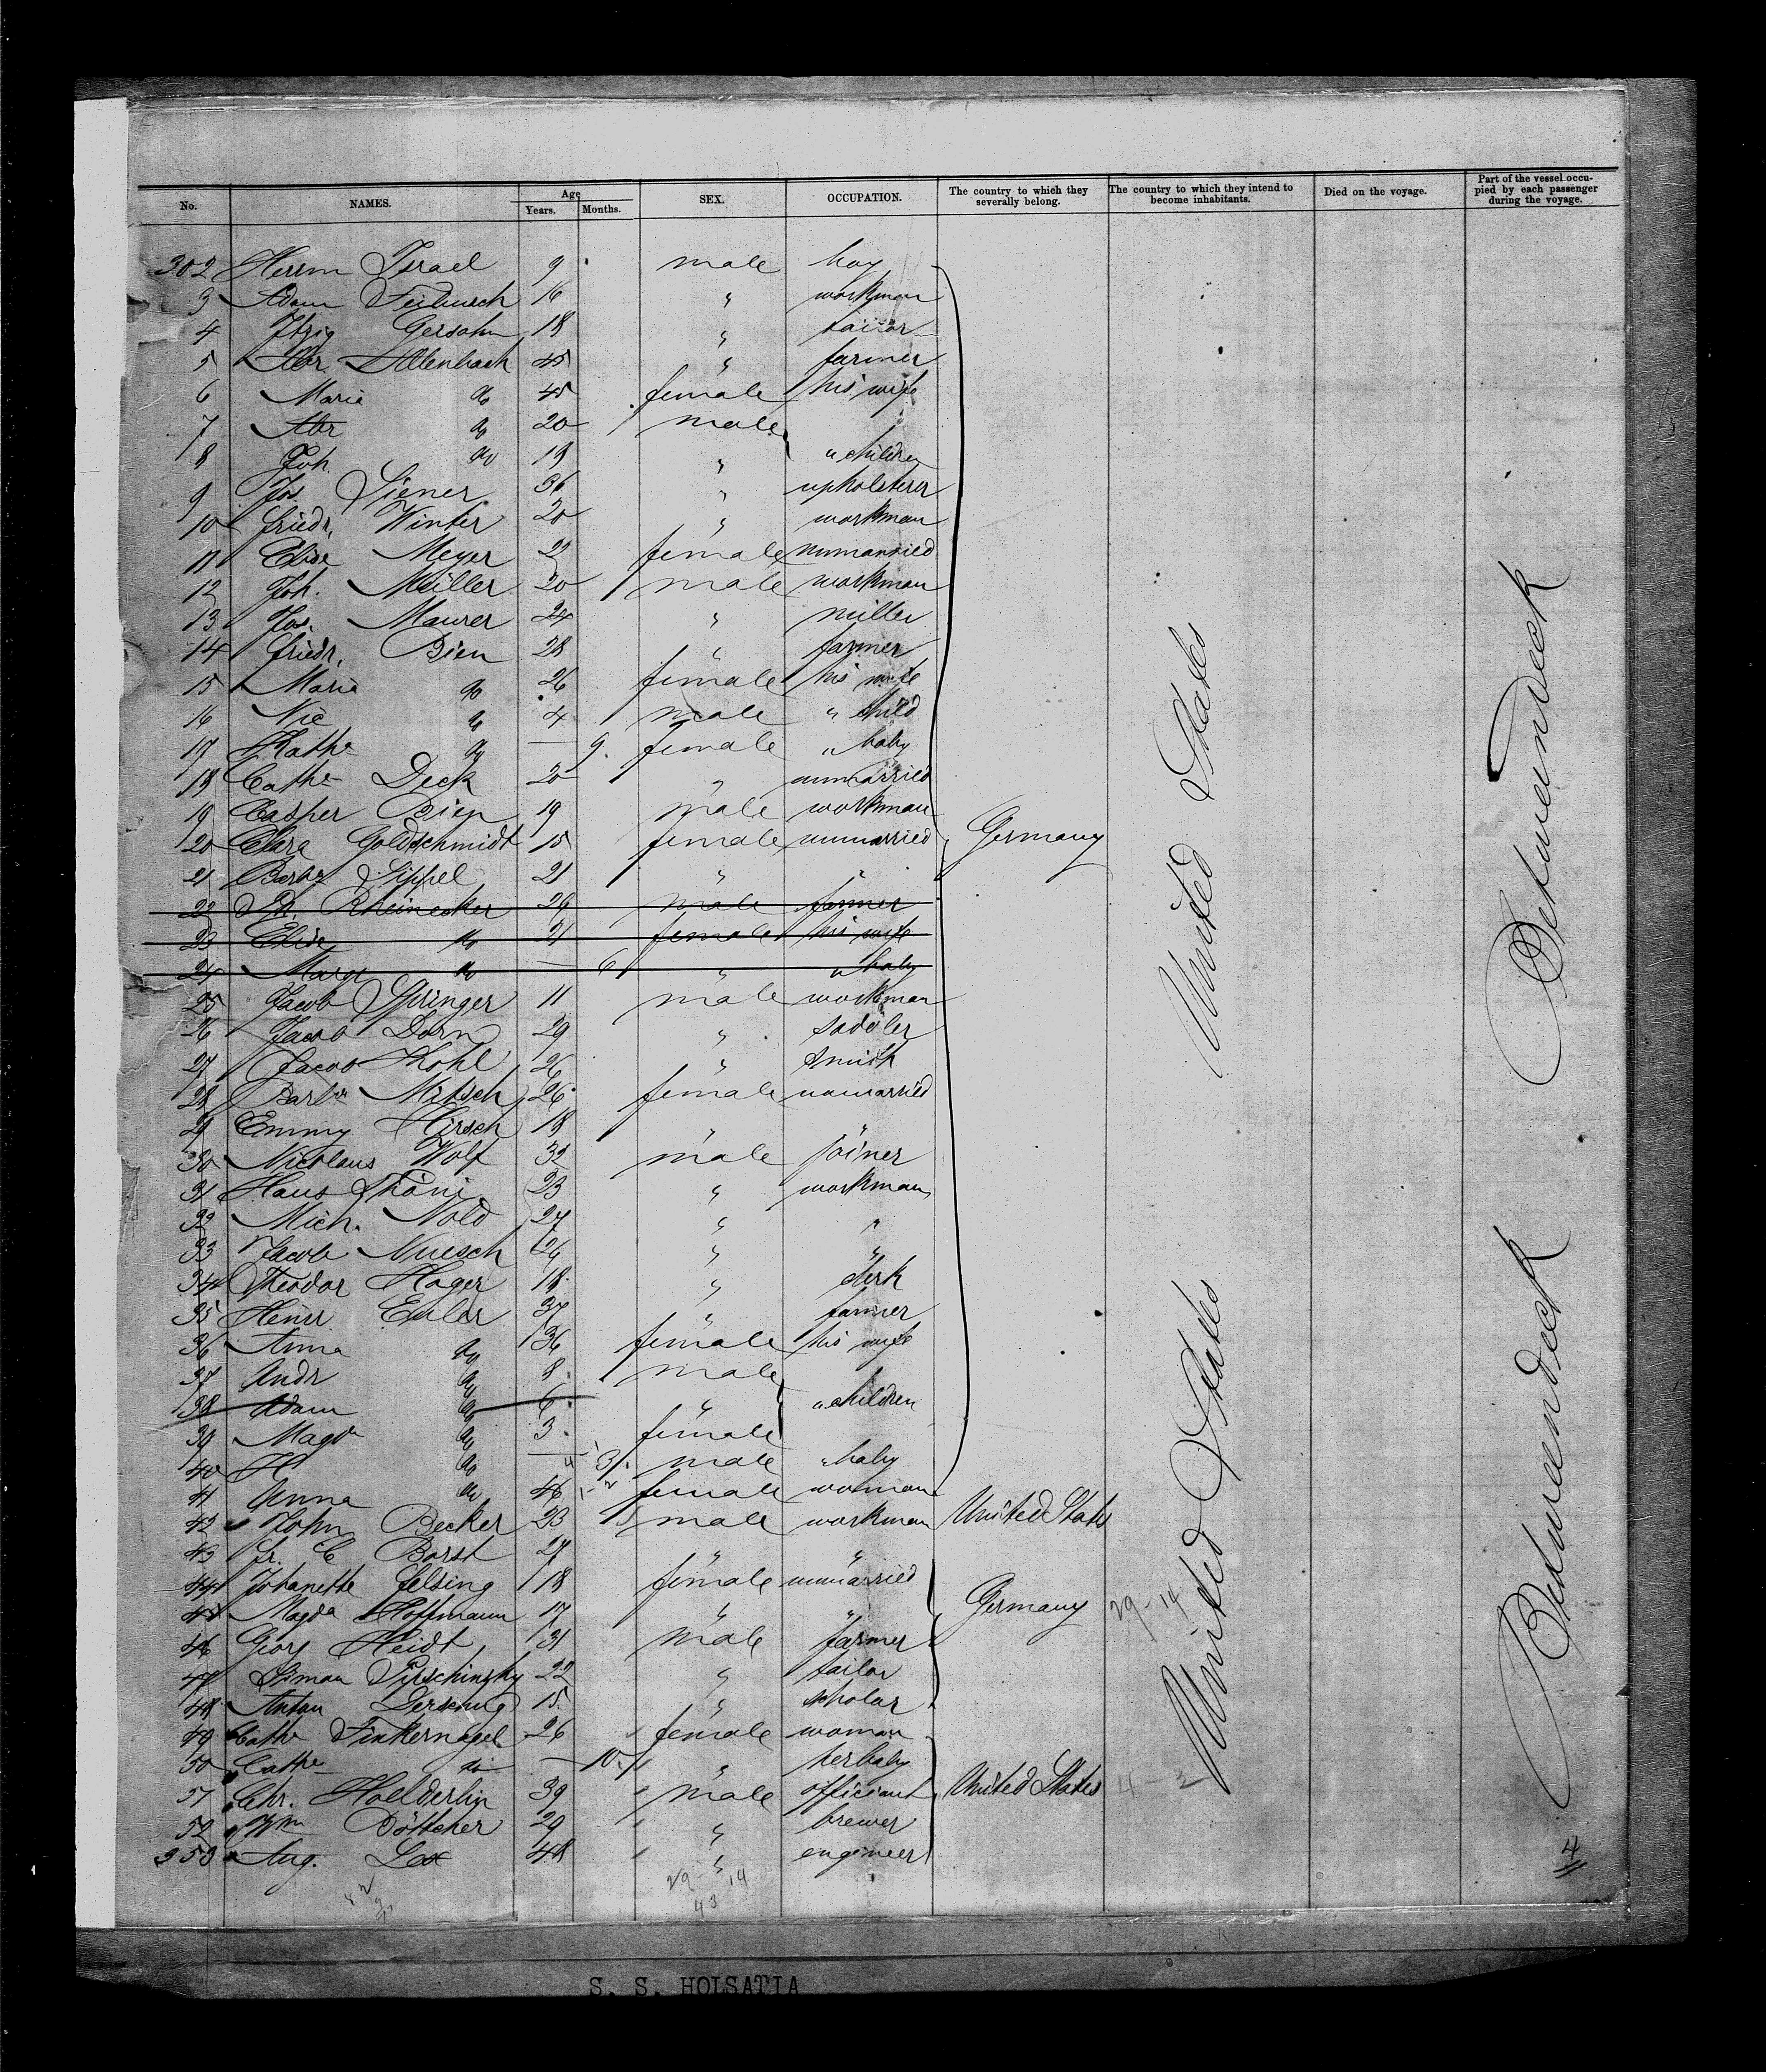 No. NAMES. Age Years. Months. SEX. OCCUPATION. The country to which they severally belong. The country to which they intend to become inhabitants. Died on the voyage. Part of the vessel occupied by each passenger during the voyage.
302 Herrm Israel 9 male boy
3 Adam Feibusch 16 " workman
4 Itzig Gersohn 18 " tailor
5 Abr Allenbach 45 " farmer
6 Maria do 45 female his wife
7 Abr do 20 male
8 Joh. do 19 " " children
9 Jos. Siener 36 " upholsterer
10 Friedr. Winter 20 " workman
11 Elise Meyer 22 female unmarried
12 Joh. Müller 20 male workman
13 Jos. Maurer 24 " miller
14 Friedr. Bien 28 " farmer
15 Maria do 26 female his wife
16 Nic do 4 male " child
17 Kathe do — 9 female " baby
18 Cathe Deck 20 " unmarried
19 Casper Bien 19 male workman
20 Clara Goldschmidt 15 female unmarried Germany
21 Barba Sippel 21 " "
22 Ph. Rheinecker 26 male farmer
23 Elise do 21 female his wife
24 Marg do — 6 " " baby
25 Jacob Springer 11 male workman
26 Jacob Dorn 29 " saddler
27 Jacob Kohl 26 " smith
28 Barba Mitsch 26 female unmarried
29 Emmy Hirsch 18 " "
30 Nicolaus Wolf 32 male joiner
31 Hans Thöni 23 " workman
32 Mich. Nold 27 " "
33 Jacob Nuesch 26 " "
34 Theodor Hager 18 " clerk
35 Henri Euler 37 " farmer
36 Anna do 36 female his wife
37 Andr do 8 male
38 Adam do 6 " " children
39 Magda do 3 female
40 H do — 3 male " baby
41 Anna do 46 female woman
42 John Becker 23 male workman United States
43 Fr. C Borst 27 " "
44 Johanette Felsing 18 female unmarried
45 Magda Hoffmann 17 " " Germany 29-14
46 Georg Heidt 31 male farmer
47 Simon Pirschinsky 22 " tailor
48 Anton Dersching 15 " scholar
49 Cathe Finkernagel 26 female woman
50 Cathe do — 10 " her baby
51 Chr. Hoelderlin 39 male officiant United States 4-2
52 Wm Böttcher 29 " brewer
353 Aug. Lax 48 " engineer
United States
United States
Between Deck
Between Deck
4
29-14
43
S. S. HOLSATIA